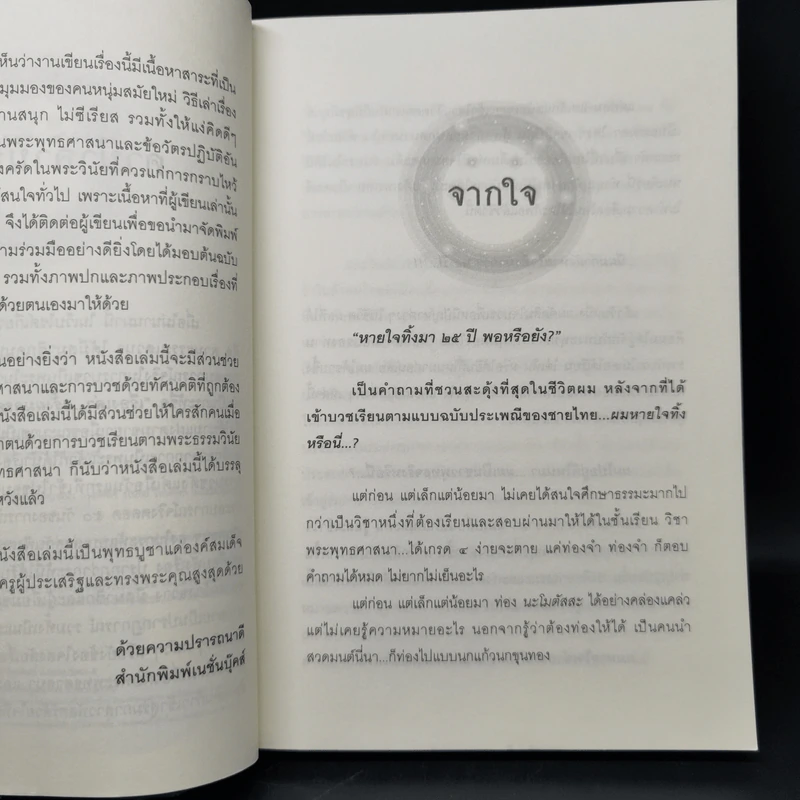 ห็นว่างานเขียนเรื่องนี้มีเนื้อหาสาระที่เป็น
มุมมองของคนหนุ่มสมัยใหม่ วิธีเล่าเรื่อง
านสนุก ไม่ซีเรียส รวมทั้งให้แง่คิดดีๆ
นพระพุทธศาสนาและข้อวัตรปฏิบัติอัน
งครัดในพระวินัยที่ควรแก่การกราบไหว้
้สนใจทั่วไป เพราะเนื้อหาที่ผู้เขียนเล่านั้น
จึงได้ติดต่อผู้เขียนเพื่อขอนำมาจัดพิมพ์
ามร่วมมืออย่างดียิ่งโดยได้มอบต้นฉบับ
รวมทั้งภาพปกและภาพประกอบเรื่องที่
ด้วยตนเองมาให้ด้วย
นอย่างยิ่งว่า หนังสือเล่มนี้จะมีส่วนช่วย
ศาสนาและการบวชด้วยทัศนคติที่ถูกต้อง
นังสือเล่มนี้ได้มีส่วนช่วยให้ใครสักคนเมื่อ
าตนด้วยการบวชเรียนตามพระธรรมวินัย
ทธศาสนา ก็นับว่าหนังสือเล่มนี้ได้บรรลุ
หวังแล้ว
นังสือเล่มนี้เป็นพุทธบูชาแด่องค์สมเด็จ
ครูผู้ประเสริฐและทรงพระคุณสูงสุดด้วย
ด้วยความปรารถนาดี
สำนักพิมพ์เนชั่นบุ๊คส์
จากใจ
“หายใจทิ้งมา ๒๕ ปี พอหรือยัง?”
เป็นคำถามที่ชวนสะดุ้งที่สุดในชีวิตผม หลังจากที่ได้
เข้าบวชเรียนตามแบบฉบับประเพณีของชายไทย...ผมหายใจทิ้ง
หรือนี่...?
แต่ก่อน แต่เล็กแต่น้อยมา ไม่เคยได้สนใจศึกษาธรรมะมากไป
กว่าเป็นวิชาหนึ่งที่ต้องเรียนและสอบผ่านมาให้ได้ในชั้นเรียน วิชา
พระพุทธศาสนา...ได้เกรด ๔ ง่ายจะตาย แค่ท่องจำ ท่องจำ ก็ตอบ
คำถามได้หมด ไม่ยากไม่เย็นอะไร
แต่ก่อน แต่เล็กแต่น้อยมา ท่อง นะโมตัสสะ ได้อย่างคล่องแคล่ว
แต่ไม่เคยรู้ความหมายอะไร นอกจากรู้ว่าต้องท่องให้ได้ เป็นคนนำ
สวดมนต์นี่นา...ก็ท่องไปแบบนกแก้วนกขุนทอง